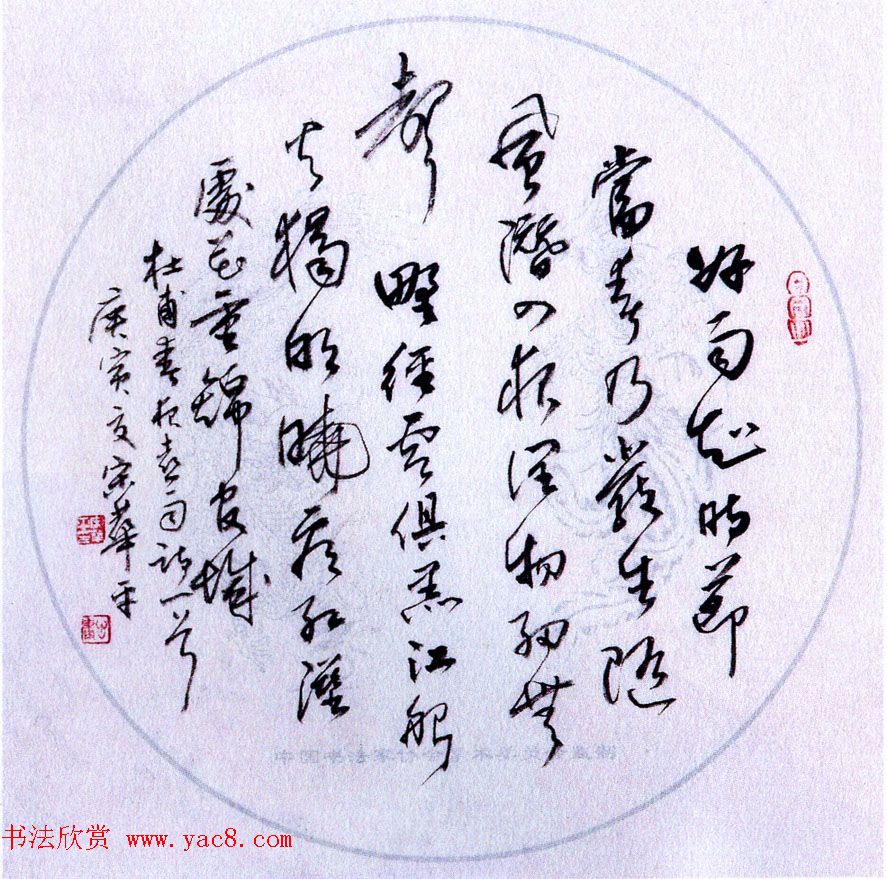 好雨知時節
當春乃發生隨
風潛入夜潤物細無
聲野徑雲俱黑江船
火獨明曉看紅濕
處花重錦官城
杜甫春夜喜雨詩一首
庚寅夏宋華平
中国书法家协会
书法欣赏 www.yac8.com